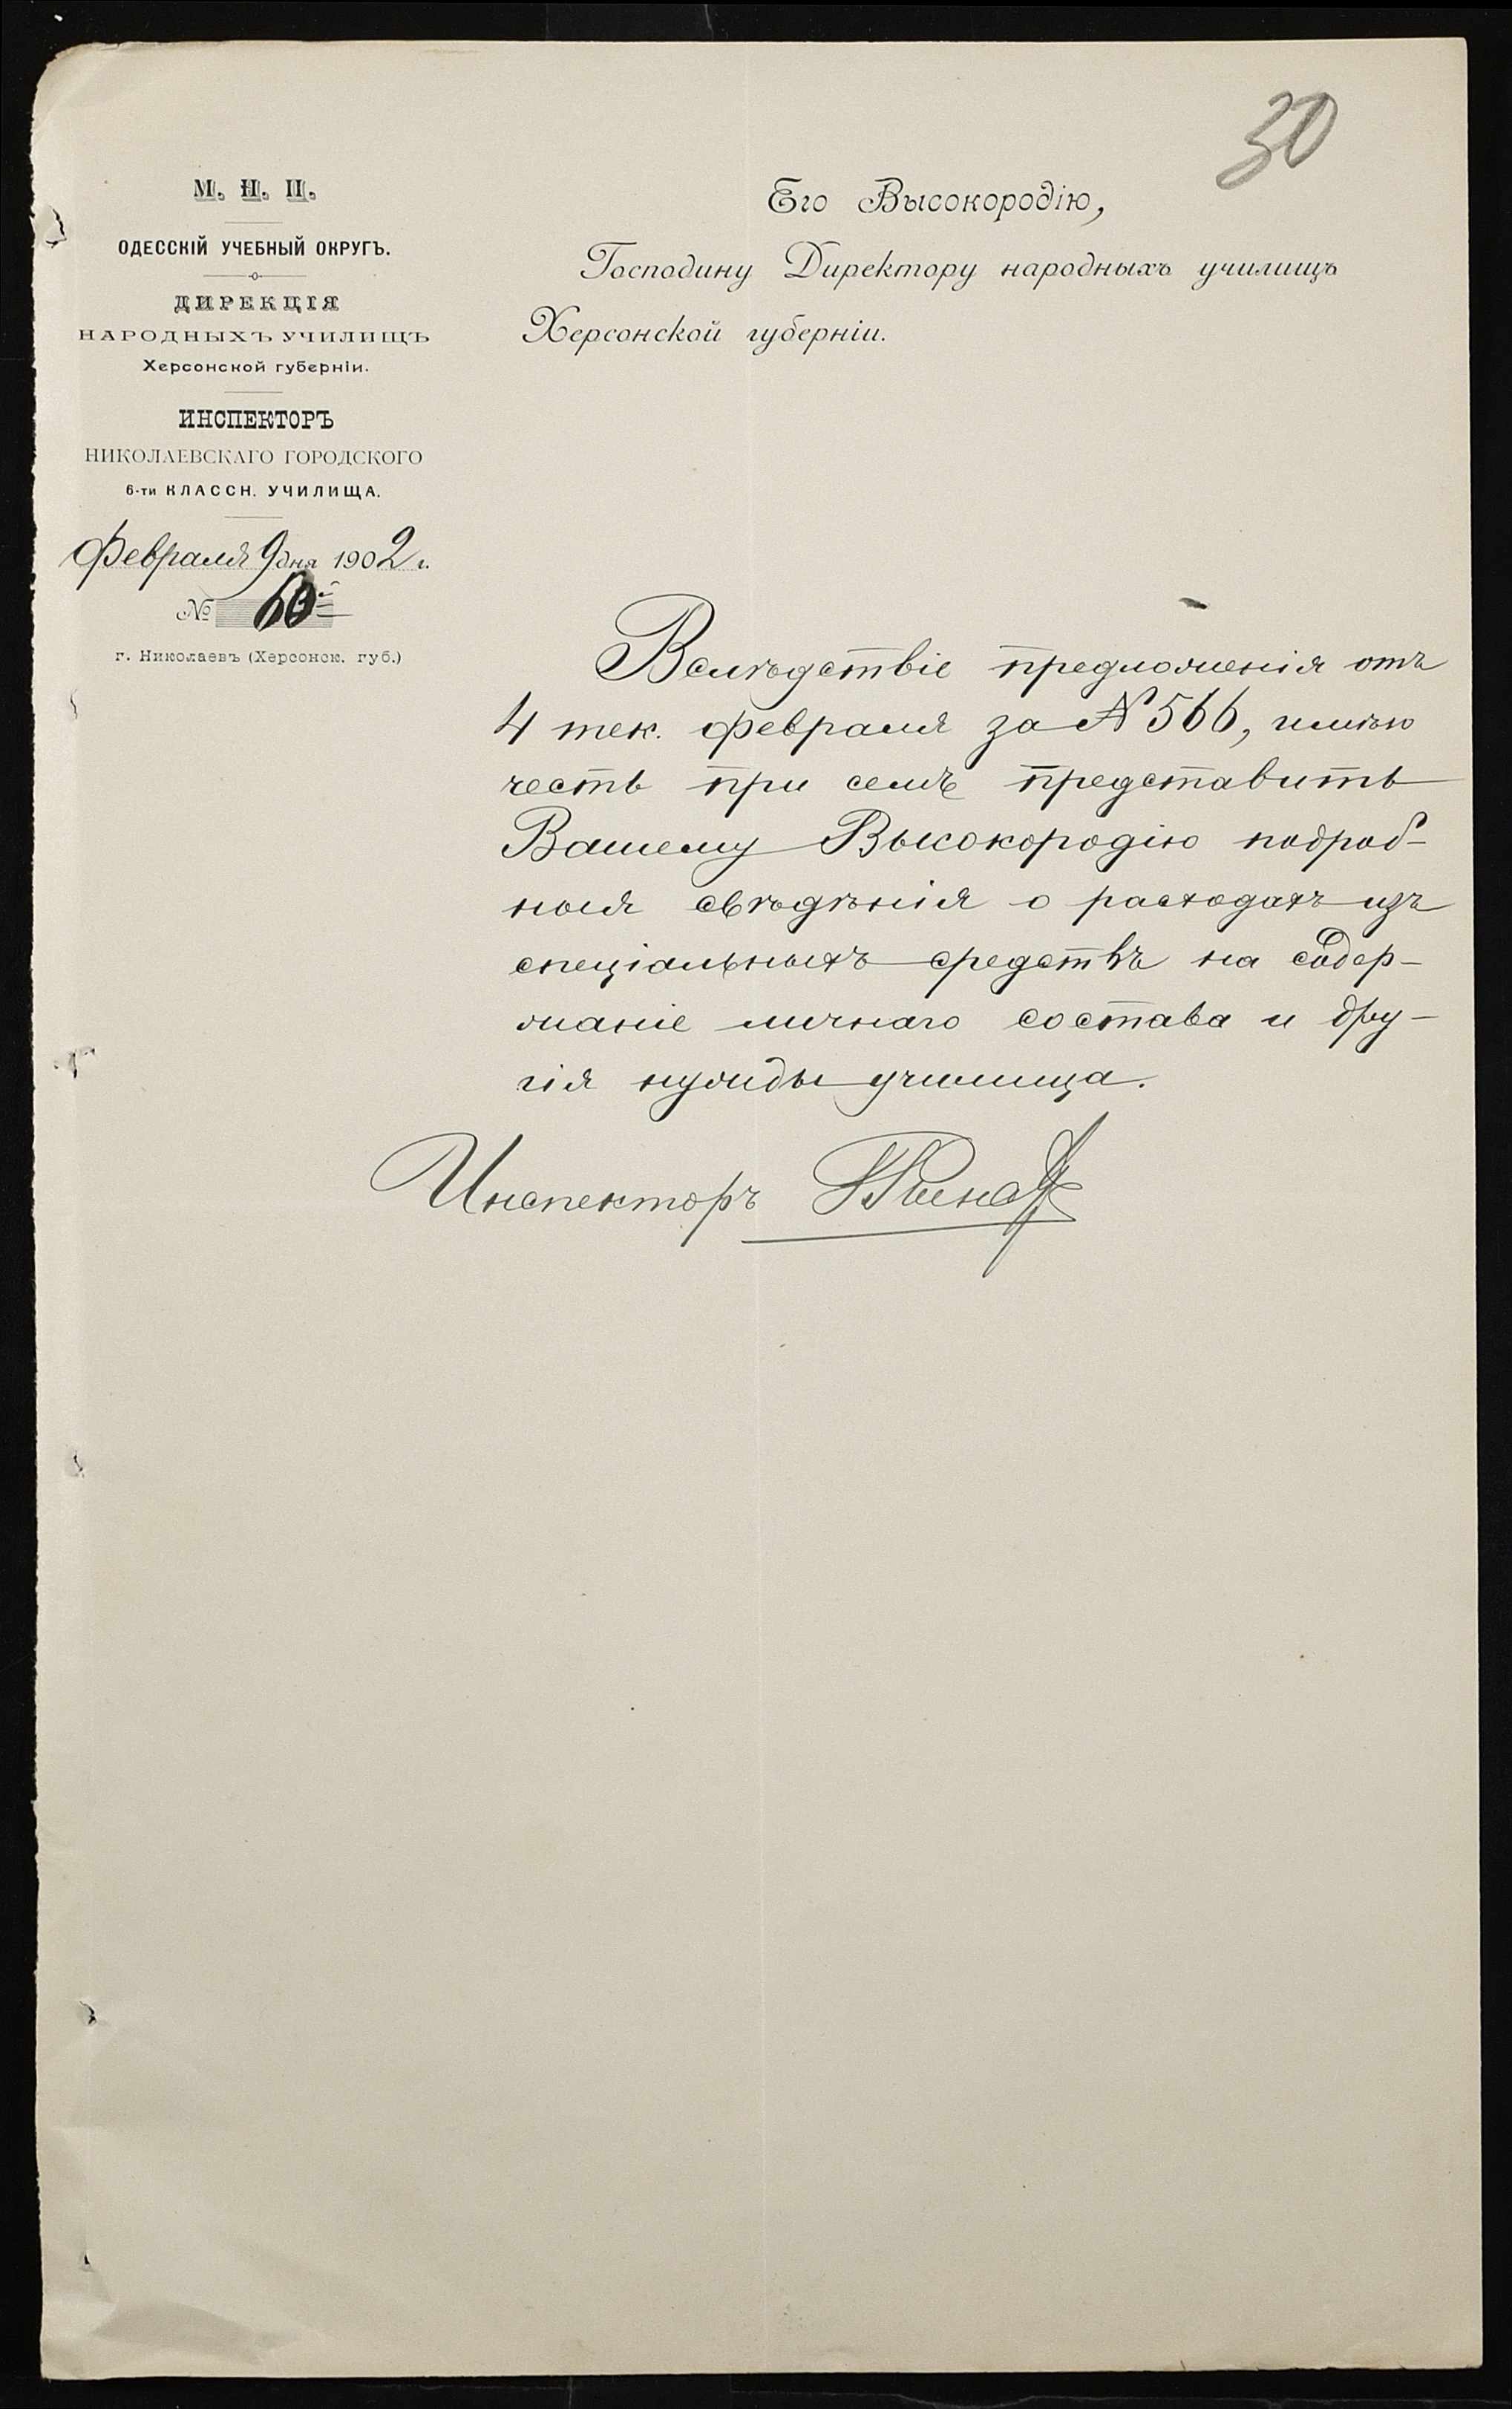 30
М. Н. П.
ОДЕССКІЙ УЧЕБНЫЙ ОКРУГЪ.
ДИРЕКЦІЯ
НАРОДНЫХЪ УЧИЛИЩЪ
Херсонской губерніи.
ИНСПЕКТОРЪ
НИКОЛАЕВСКАГО ГОРОДСКОГО
6-ти КЛАССН. УЧИЛИЩА.
Февраля 9 дня 1902 г.
№
г. Николаевъ (Херсонск. губ.)
Его Высокородію,
Господину Директору народныхъ училищъ
Херсонской губерніи.
Вслѣдствіе предложенія отъ
4 тек. февраля за № 566, имѣю
честь при семъ представить
Вашему Высокородію подроб-
ныя свѣдѣнія о расходахъ изъ
спеціальныхъ средствъ на содер-
жаніе личнаго состава и дру-
гія нужды училища.
Инспекторъ